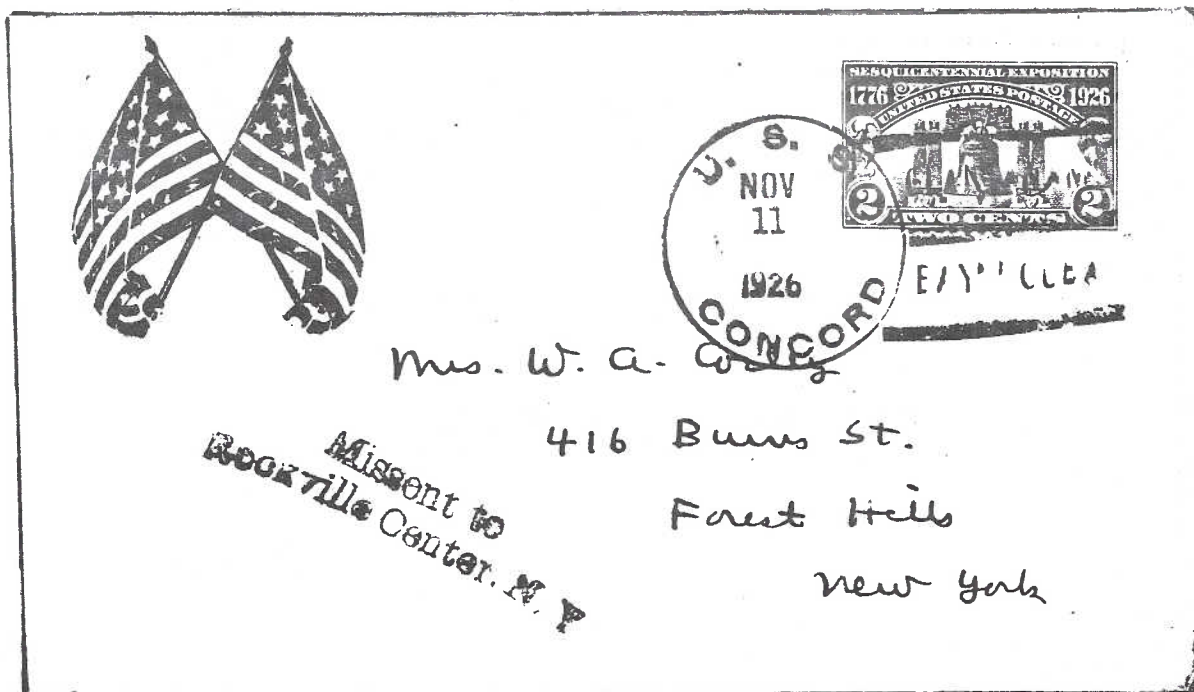 SESQUICENTENNIAL EXPOSITION
1776 UNITED STATES POSTAGE 1926
2 TWO CENTS 2
U. S. S.
NOV
11
1926
CONCORD
Mrs. W. A.
416 Burns St.
Forest Hills
New York
Missent to
Rockville Center. N. Y